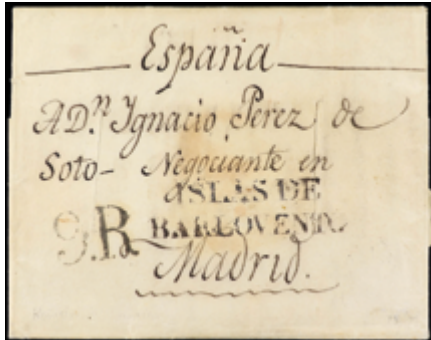 España
A Dn. Ygnacio Perez de
Soto - Negociante en
ISLAS DE
9.R BARLOVENTO
Madrid.